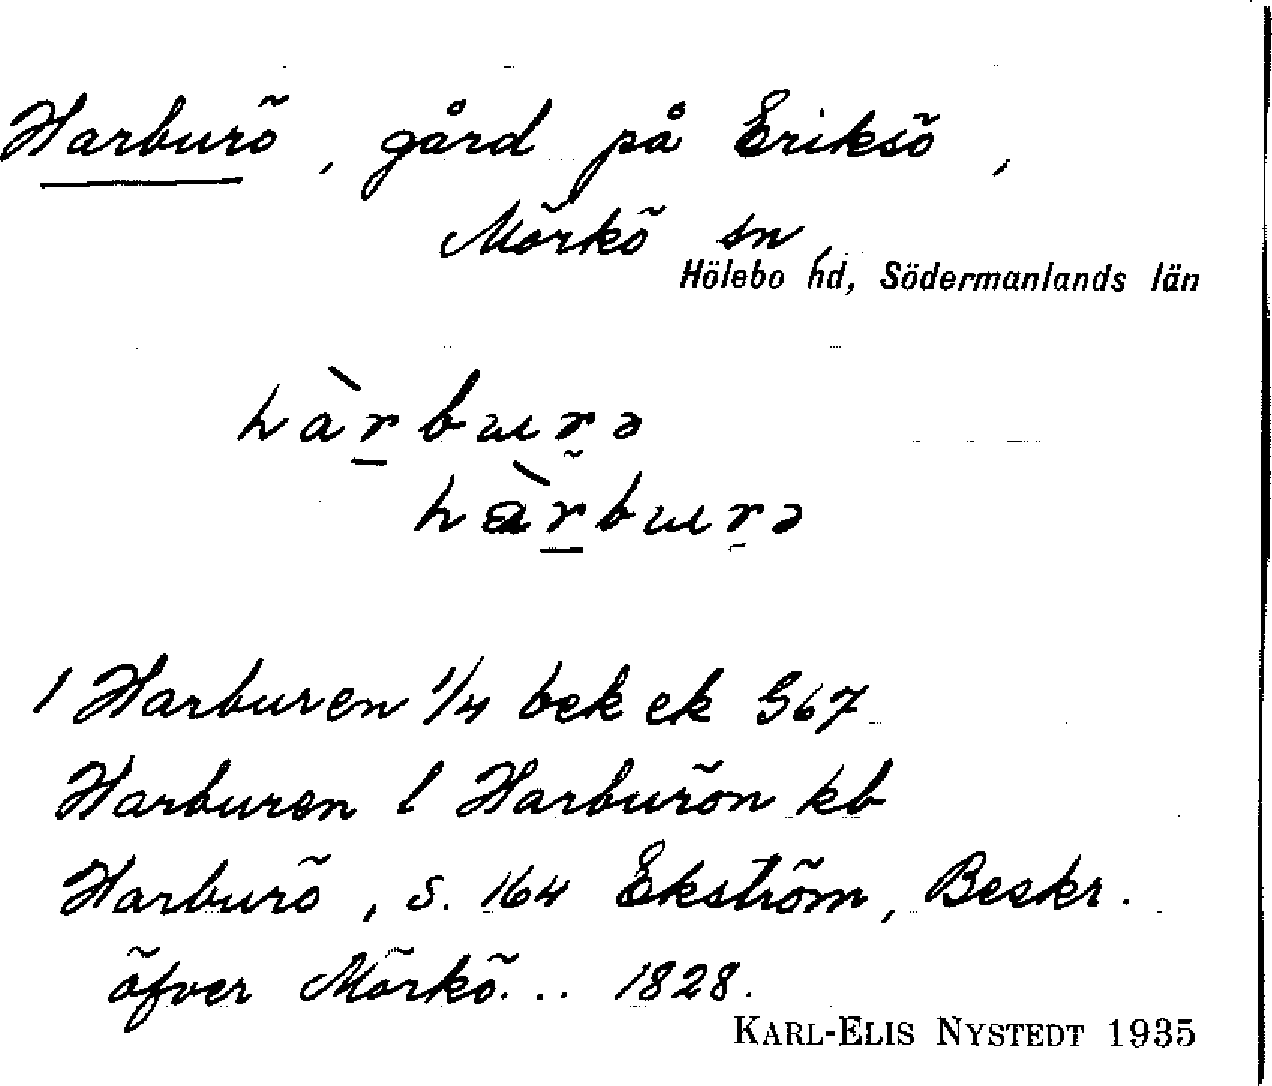 Harburö, gård på Eriksö,
Mörkö sn,
Hölebo hd, Södermanlands län
hàrburə
hàrburə
1 Harburen 1/4 bek ek G67
Harburen l Harburön kb
Harburö, s. 164 Ekström, Beskr.
öfver Mörkö... 1828.
KARL-ELIS NYSTEDT 1935